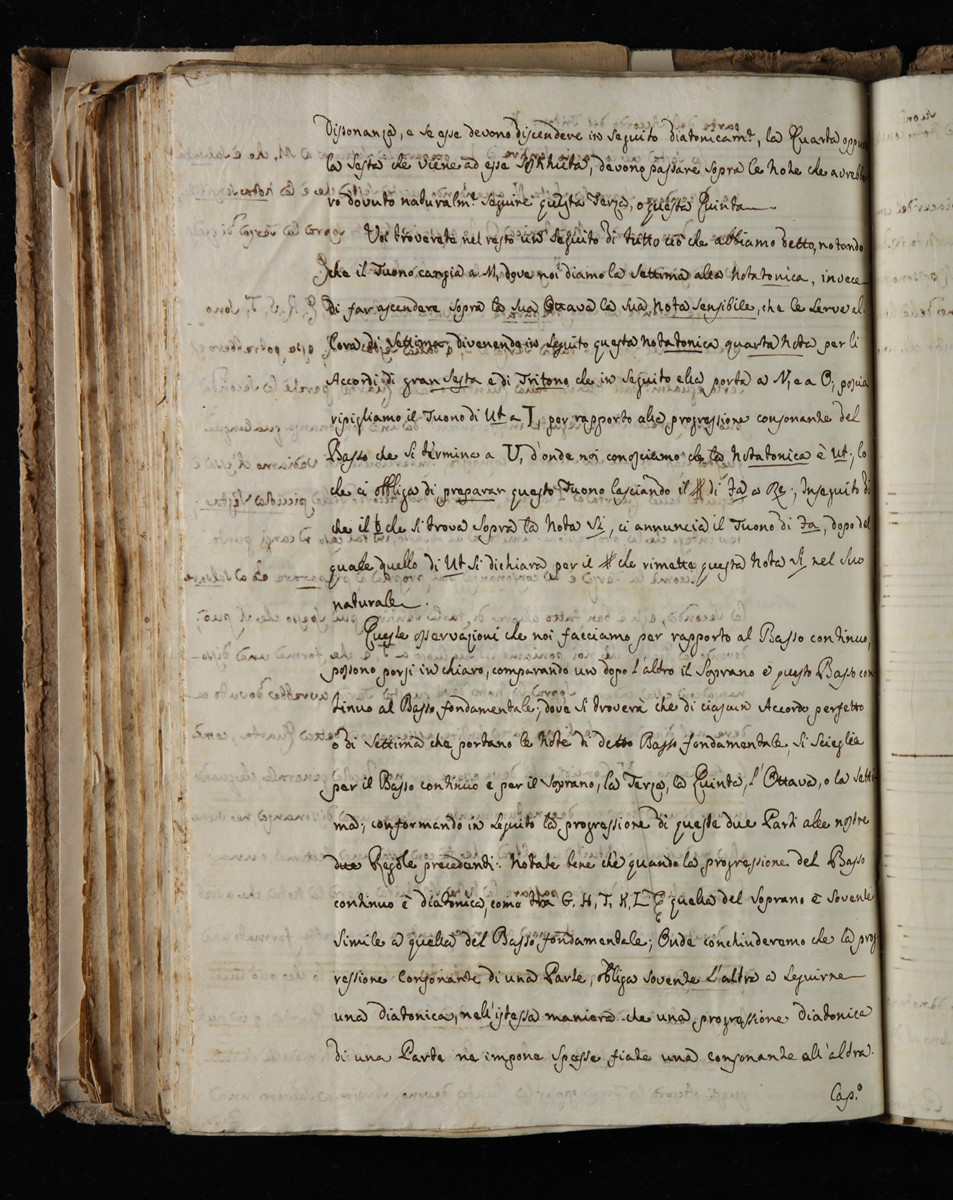 Dissonanza, e se esse devono discendere in seguito diatonicam.te, la Quarta oppure
la Sesta che viene ad esse sostituita, devono passare sopra le Note che avrebbe
ro dovuto naturalm.te seguire questa Terza, o questa Quinta.
Voi troverete nel resto un seguito di tutto ciò che abbiamo detto, notando
che il Tuono cangia a M, dove noi diamo la Settima alla Notatonica, invece
di far ascendere sopra la sua Ottava la sua Nota sensibile, che le serve al
lora di Settima, divenendo in seguito questa Notatonica quarta Nota per li
Accordi di gran Sesta e di Tritono che in seguito ella porta a N, e a O; poscia
ripigliamo il Tuono di Ut a T, per rapporto alla progressione consonante del
Basso che si termina a V, d'onde noi conosciamo che la Notatonica è Ut; lo
che ci obbliga di preparar questo Tuono lasciando il # di Fa a Re; Inseguito di
che il b che si trova sopra la Nota Si, ci annuncia il Tuono di Fa, dopo del
quale quello di Ut si dichiara per il # che rimette questa Nota Si nel suo
naturale.
Queste osservazioni che noi facciamo per rapporto al Basso continuo,
possono porsi in chiaro, comparando un dopo l'altro il Soprano e questo Basso con
tinuo al Basso fondamentale; dove si troverà che di ciascun Accordo perfetto
o di Settima che portano le Note di detto Basso fondamentale, si scieglie
per il Basso continuo e per il Soprano, la Terza, la Quinta, l'Ottava, o la Setti
ma; conformando in seguito la progressione di queste due Parti alle nostre
due Regole precedenti. Notate bene che quando la progressione del Basso
continuo è diatonica, come tra G, H, T, K, L quella del Soprano è sovente
simile a quella del Basso fondamentale; Onde conchiuderemo che la prog
ressione Consonante di una Parte, obbliga sovente l'altra a seguirne
una diatonica, nell'istessa maniera che una progressione diatonica
di una Parte ne impone spesse fiate una consonante all'altra.
Cap.o